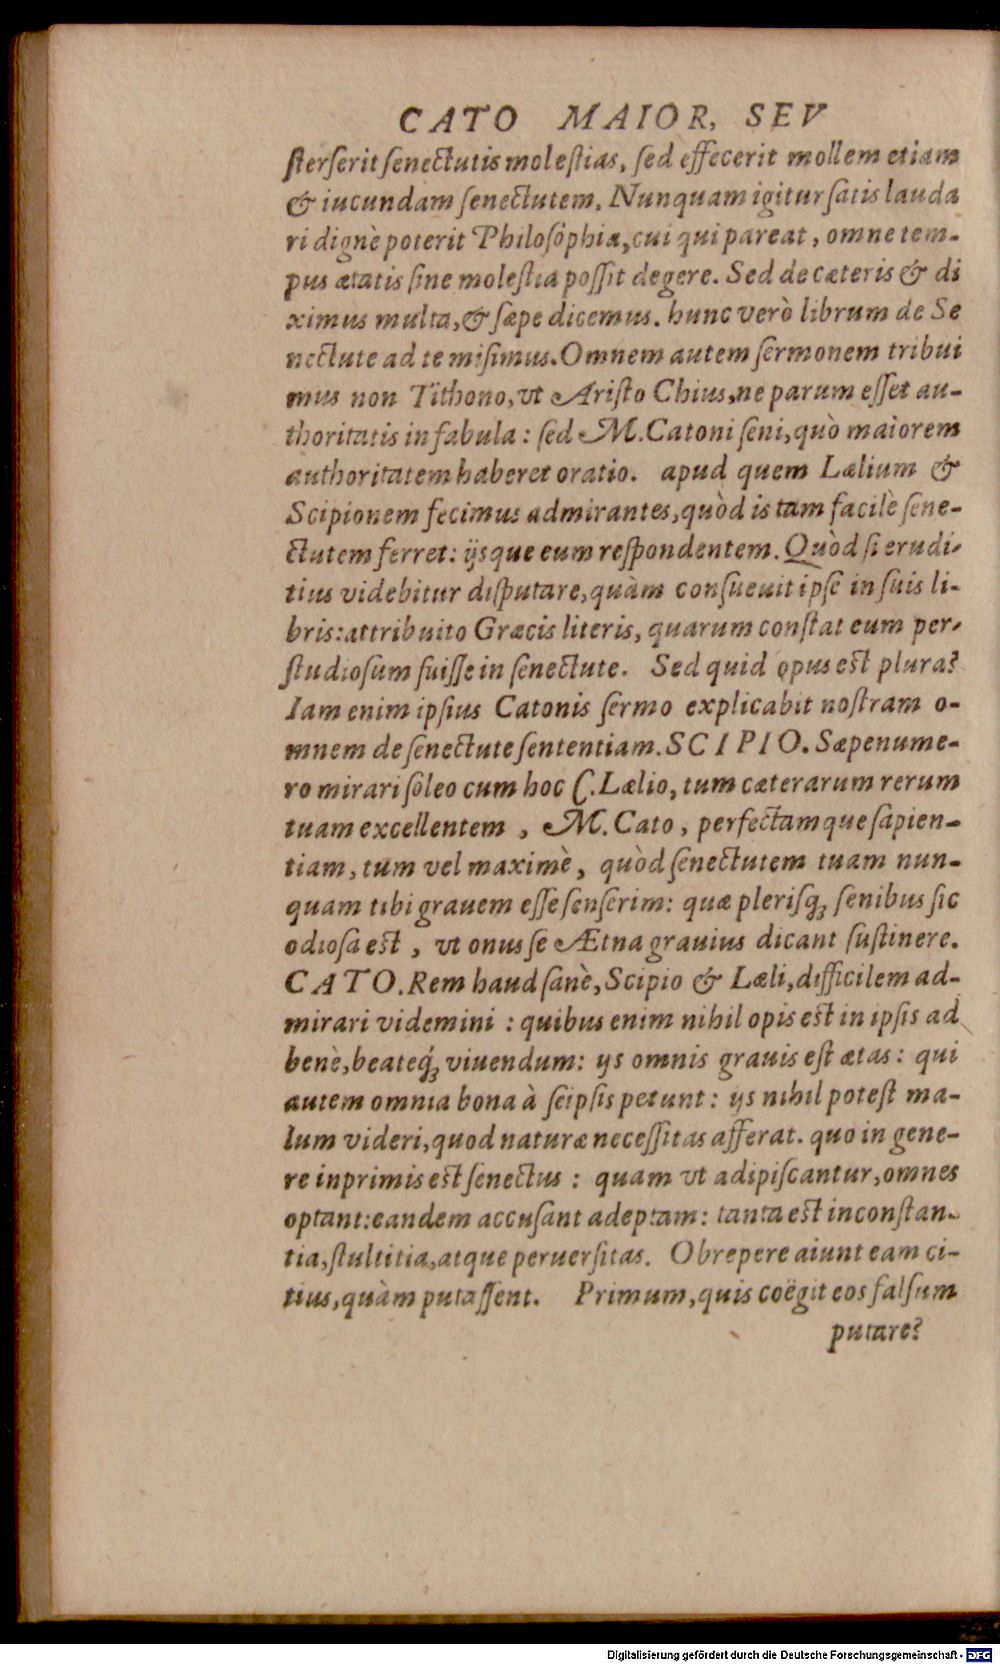 CATO MAIOR, SEV
ſterſerit ſenectutis moleſtias, ſed effecerit mollem etiam
& iucundam ſenectutem. Nunquam igitur ſatis lauda
ri dignè poterit Philoſophiæ, cui qui pareat, omne tem-
pus ætatis ſine moleſtia poſſit degere. Sed de cæteris & di
ximus multa, & ſæpe dicemus. hunc verò librum de Se
nectute ad te miſimus. Omnem autem ſermonem tribui
mus non Tithono, vt Ariſto Chius, ne parum eſſet au-
thoritatis in fabula: ſed M. Catoni ſeni, quò maiorem
authoritatem haberet oratio. apud quem Lælium &
Scipionem fecimus admirantes, quòd is tam facilè ſene-
ctutem ferret: ijsque eum reſpondentem. Quòd ſi erudi-
tius videbitur diſputare, quàm conſueuit ipſe in ſuis li-
bris: attribuito Græcis literis, quarum conſtat eum per-
ſtudioſum fuiſſe in ſenectute. Sed quid opus est plura?
Iam enim ipſius Catonis ſermo explicabit noſtram o-
mnem de ſenectute ſententiam. SCIPIO. Sæpenume-
ro mirari ſoleo cum hoc C. Lælio, tum cæterarum rerum
tuam excellentem, M. Cato, perfectamque ſapien-
tiam, tum vel maximè, quòd ſenectutem tuam nun-
quam tibi grauem eſſe ſenſerim: quæ pleriſq; ſenibus ſic
odioſa est, vt onus ſe Ætna grauius dicant ſuſtinere.
CATO. Rem haud ſanè, Scipio & Læli, difficilem ad-
mirari videmini: quibus enim nihil opis est in ipſis ad
benè, beateq́; viuendum: ijs omnis grauis eſt ætas: qui
autem omnia bona à ſeipſis petunt: ijs nihil poteſt ma-
lum videri, quod naturæ neceſſitas afferat. quo in gene-
re inprimis est ſenectus: quam vt adipiſcantur, omnes
optant: eandem accuſant adeptam: tanta est inconſtan-
tia, ſtultitia, atque peruerſitas. Obrepere aiunt eam ci-
tius, quàm putaſſent. Primum, quis coëgit eos falſum
putare?
Digitalisierung gefördert durch die Deutsche Forschungsgemeinschaft - DFG